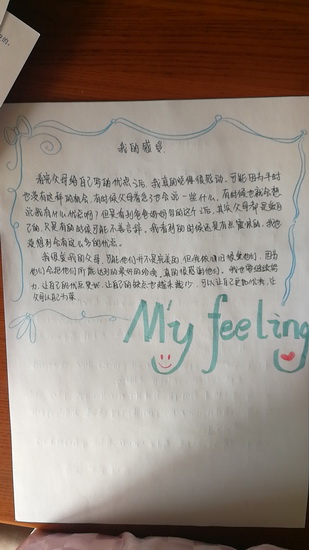 我的感受
看完父母给自己写的优点之后,我真的觉得很感动,可能因为平时
也没有这样的机会,有时候父母看急了也会说一些什么,有时候也会想
说我有什么优点呢?但是看到爸爸妈妈写的这个之后,其实父母都是爱自
己的,只是有的时候可能不善言辞,我看到的时候还是有点震惊的,我也
没想到会有这么多的优点。
我很爱我的父母,可能他们并不是完美的,但我依旧很爱他们,因为
他们会把他们所能达到的最好的给我,真的很感谢他们,我也要继续努
力,让自己的优点更多,让自己的缺点也越来越少,可以让自己更加优秀,让
父母以自己为荣。
My feeling